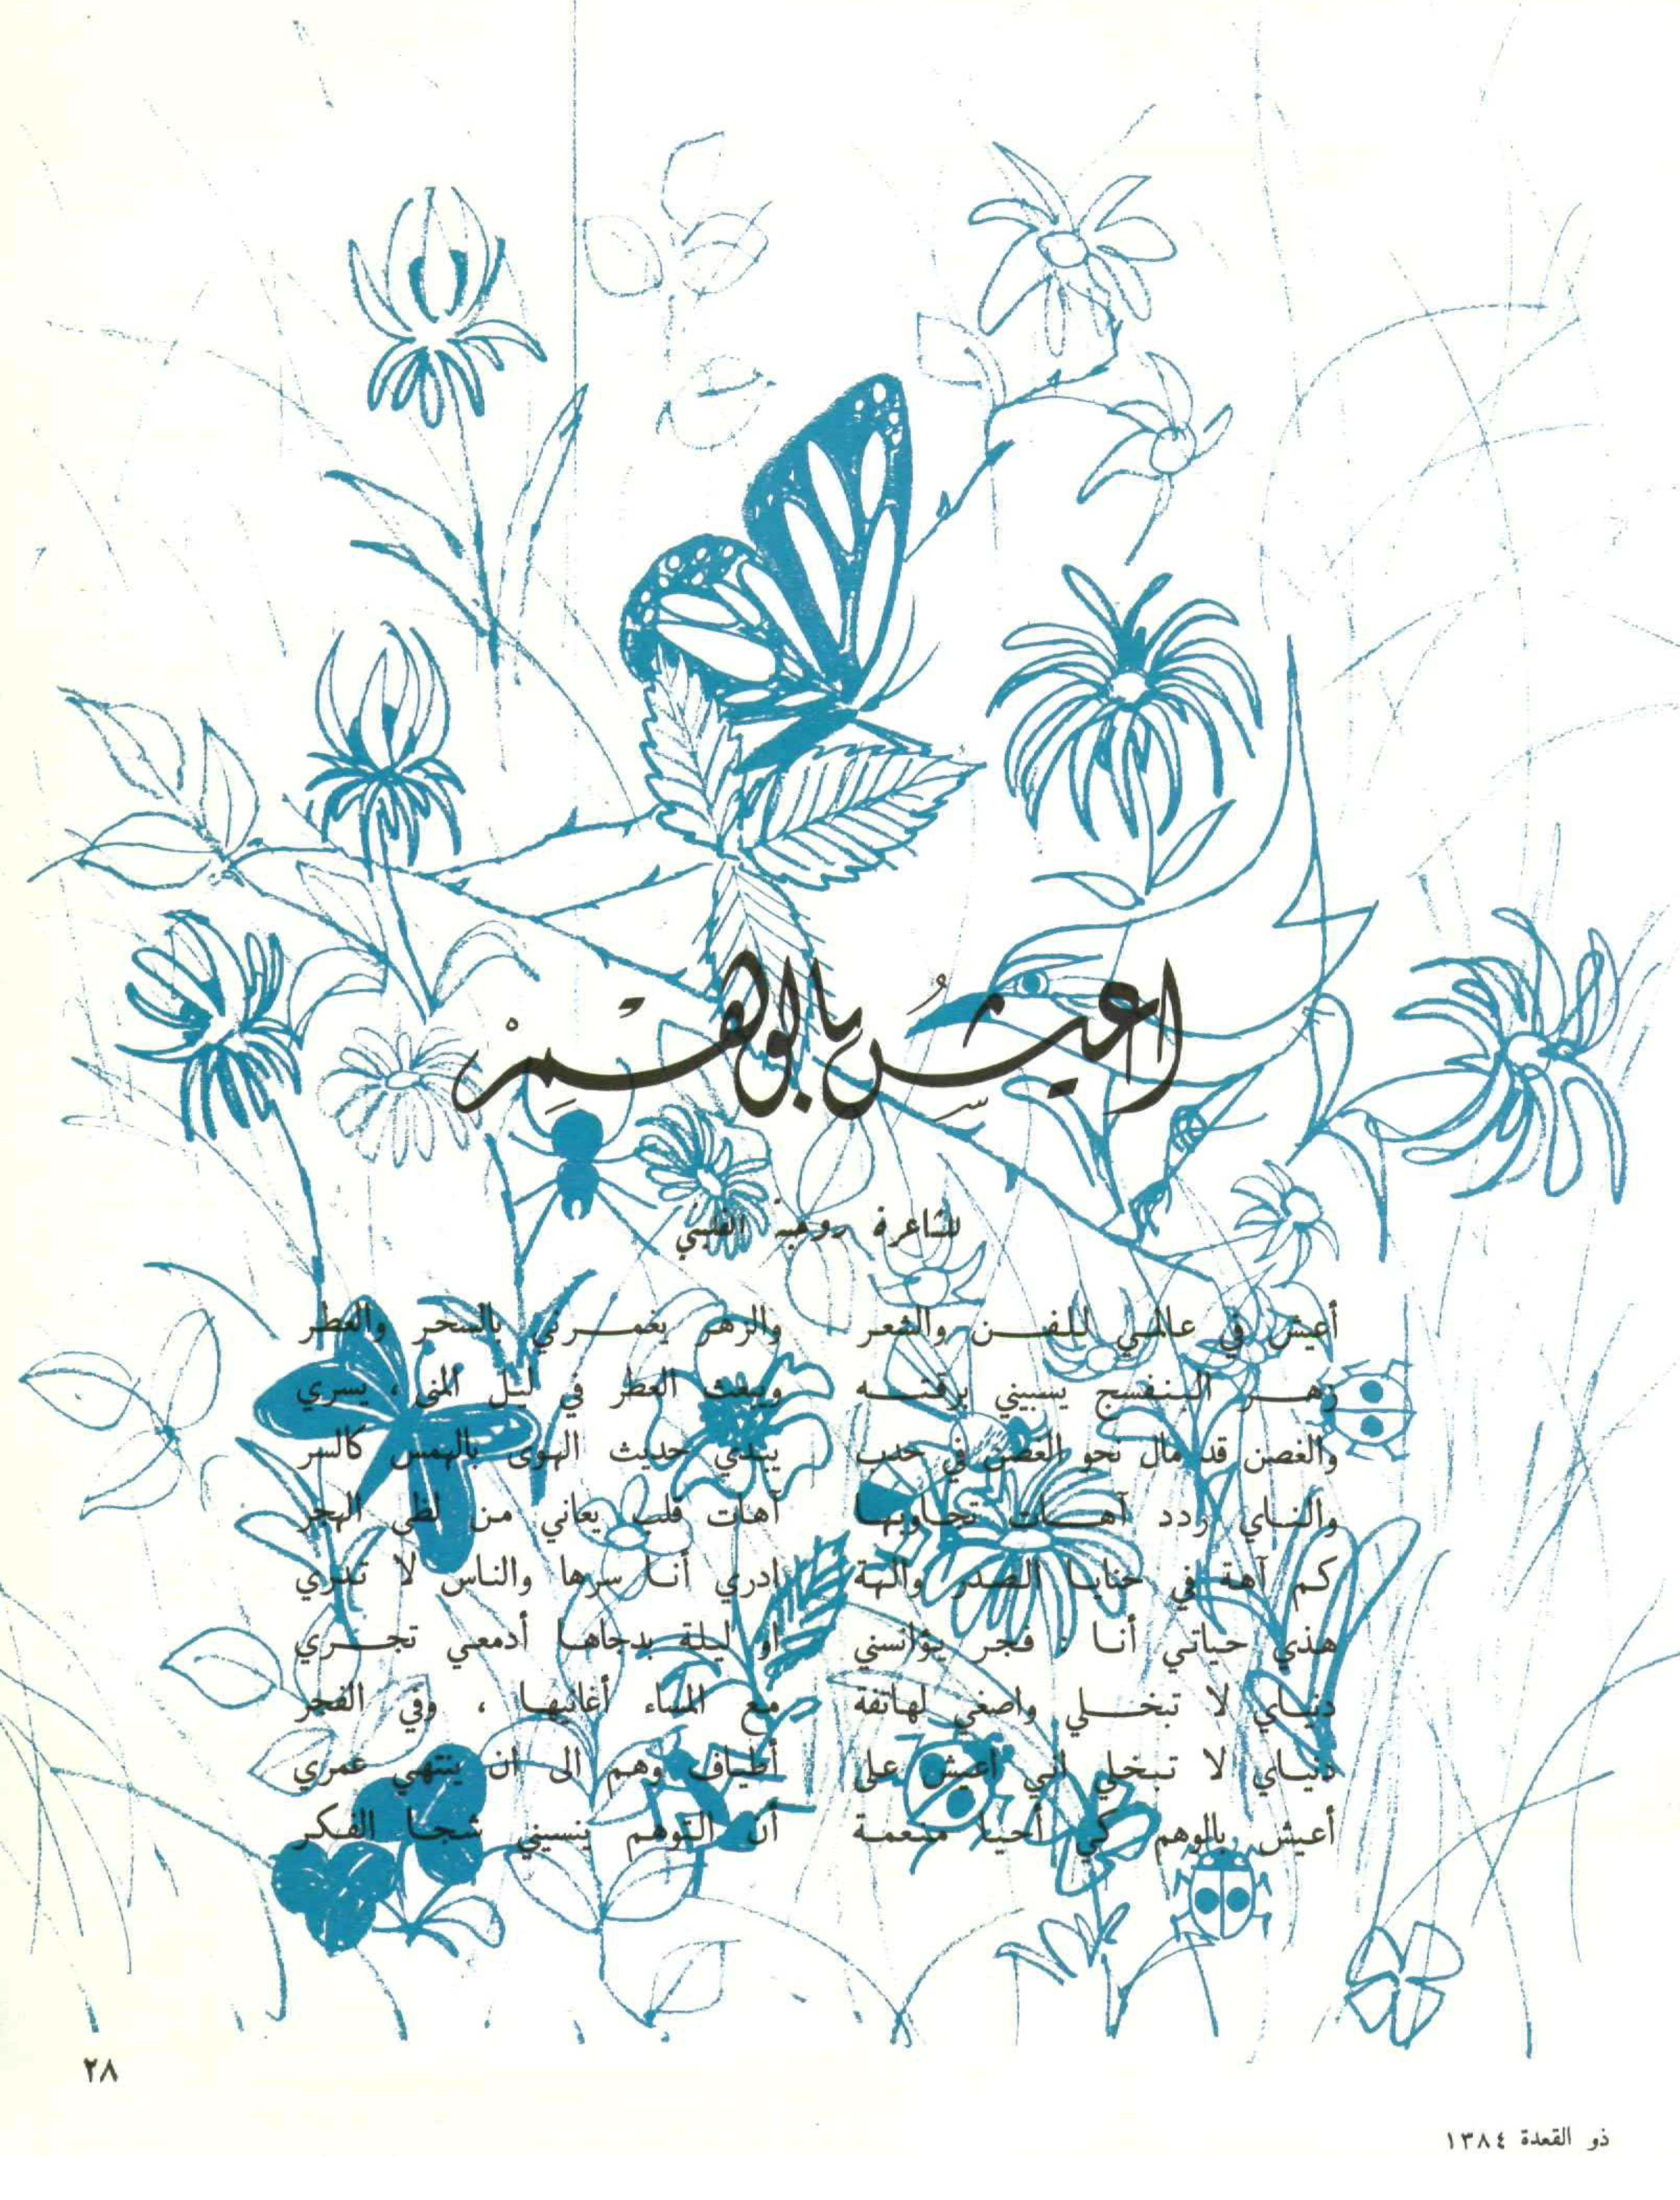 أعيش بالوهم
للشاعرة روحية القليني
أعيش في عالمي للفن والشعر والزهر يغمرني بالسحر والعطر
زهر البنفسج يسبيني برقته ويبعث العطر في ليل المنى ، يسري
والغصن قد مال نحو الغصن في حدب يبدي حديث الهوى بالهمس كالسر
والناي ردد آهات تجاوبها آهات قلب يعاني من لظى الهجر
كم آهة في حنايا الصدر والهة ادري أنا سرها والناس لا تدري
هذي حياتي أنا : فجر يؤانسني او ليلة بدجاها أدمعي تجري
دنياي لا تبخلي واصغي لهاتفة مع المساء أغانيها ، وفي الفجر
دنياي لا تبخلي اني اعيش على أطياف وهم الى ان ينتهي عمري
أعيش بالوهم كي أحيا منعمة أن التوهم ينسيني شجا الفكر
٢٨
ذو القعدة ١٣٨٤